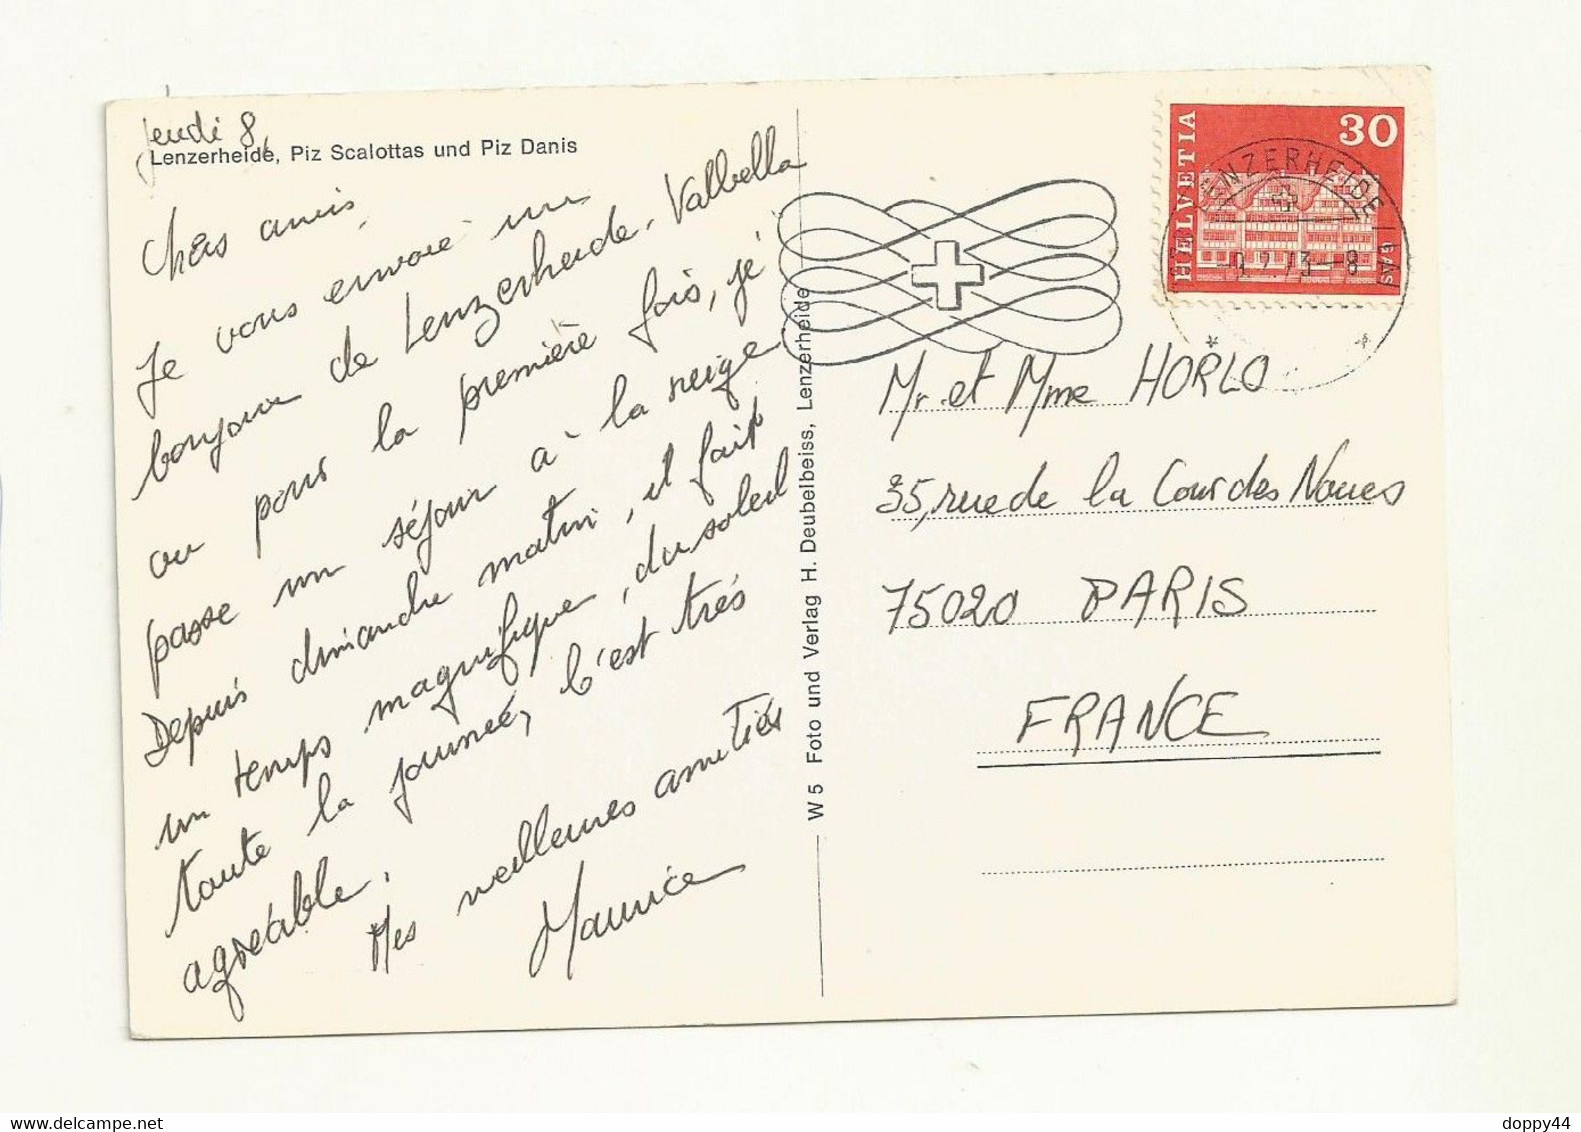 Jeudi 8,
Lenzerheide, Piz Scalottas und Piz Danis
Chers amis,
Je vous envoie un
bonjour de Lenzerheide-Valbella
ou pour la première fois, je
passe un séjour à la neige
Depuis dimanche matin, il fait
un temps magnifique, du soleil
toute la journée, c'est très
agréable.
Mes meilleures amitiés
Maurice
W 5 Foto und Verlag H. Deubelbeiss, Lenzerheide
HELVETIA
30
LENZERHEIDE/LAI
9.2.73-8
Mr. et Mme HORLO
35, rue de la Cour des Noues
75020 PARIS
FRANCE
doppy44